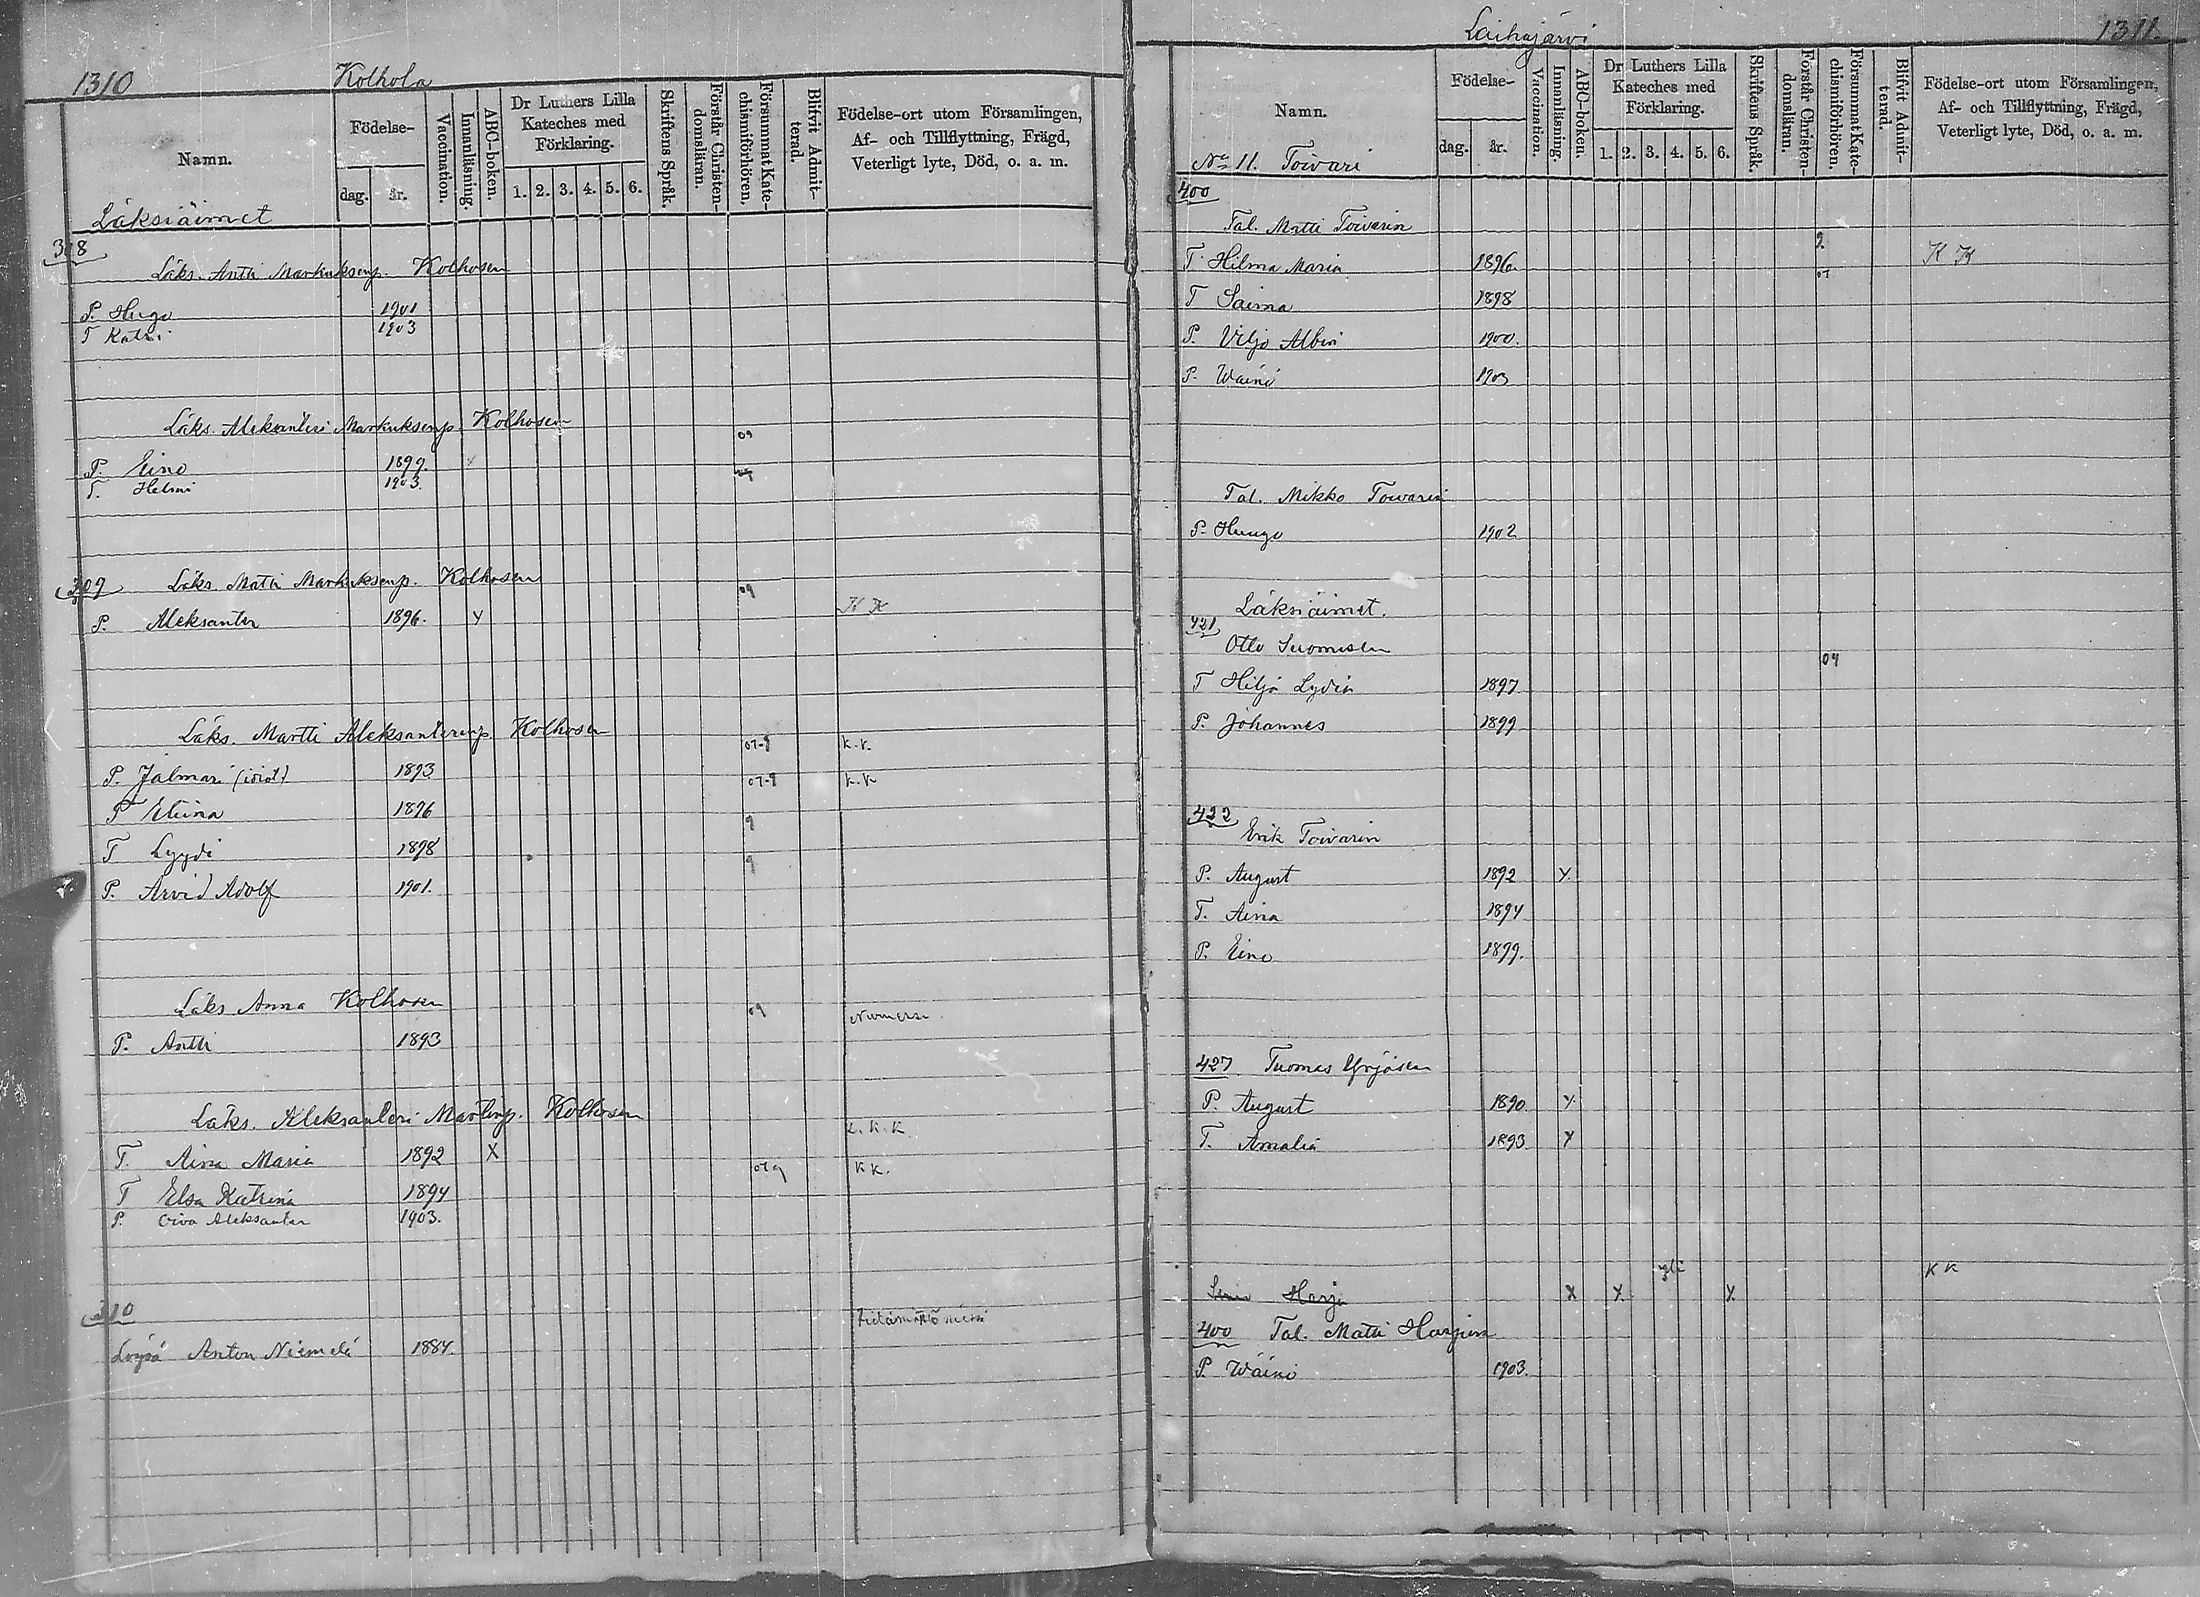 1310 Kolhola
Namn.
Födelse-
dag. år.
Vaccination.
Innanläsning.
ABC-boken.
Dr Luthers Lilla Kateches med Förklaring.
1. 2. 3. 4. 5. 6.
Skriftens Språk.
Förstår Christen-domsläran.
Försummat Kate-chismiförhören.
Blifvit Admit-terad.
Födelse-ort utom Församlingen, Af- och Tillflyttning, Frägd, Veterligt lyte, Död, o. a. m.
Läksiäimet
308
Läks. Antti Markuksenp. Kolhosen
P. Hugo 1901
T Katri 1903
Läks. Aleksanteri Markuksenp. Kolhosen
P. Eino 1899. 09
T. Helmi 1903.
309 Läks. Matti Markuksenp. Kolhosen
P. Aleksanter 1896. Y 09 K K
Läks. Martti Aleksanterinp. Kolhosen
P. Jalmari (idiot) 1893 07-9 K.K.
T Eliina 1896 07-9 K.K
T Lyydi 1898 9
P. Arvid Adolf 1901. 9
Läks Anna Kolhosen
P. Antti 1893 09 Nurmessa
Läks. Aleksanteri Martinp. Kolhosen
T. Aina Maria 1892 X K.K
T Elsa Katrina 1894 07 9 KK.
P. Oiva Aleksanter 1903.
310
Loysä Anton Niemelä 1884.
Laihajärvi 1311.
Namn.
Födelse-
dag. år.
Vaccination.
Innanläsning.
ABC-boken.
Dr Luthers Lilla Kateches med Förklaring.
1. 2. 3. 4. 5. 6.
Skriftens Språk.
Förstår Christen-domsläran.
Försummat Kate-chismiförhören.
Blifvit Admit-terad.
Födelse-ort utom Församlingen, Af- och Tillflyttning, Frägd, Veterligt lyte, Död, o. a. m.
No 11. Toivari
400
Tal. Matti Toivarin
T Hilma Maria 1896. 9 K K
T Saima 1898 07
P. Viljo Albin 1900.
P. Wäinö 1903
Tal. Mikko Toivarin
P. Huugo 1902
Läksiäimet.
421
Otto Suomisen
T Hilja Lydia 1897 09
P. Johannes 1899
422
Erik Toivarin
P. August 1892 Y.
T. Aina 1894
P. Eino 1899.
427 Tuomas Yrjösen
P. August 1890 Y
T. Amalia 1893 Y
Harju X X X KK
400 Tal. Matti Harjun
P. Wäinö 1903.